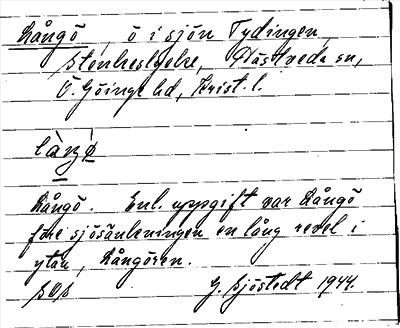 Långö, ö i sjön Tydingen,
Stenbrohylke, Hästveda sn,
Ö. Göinge hd, Krist. l.
làŋø̀
Långö. Enl. uppgift var Långö
före sjösänkningen en lång revel i
ytan, Långören.
G. Sjöstedt 1944.